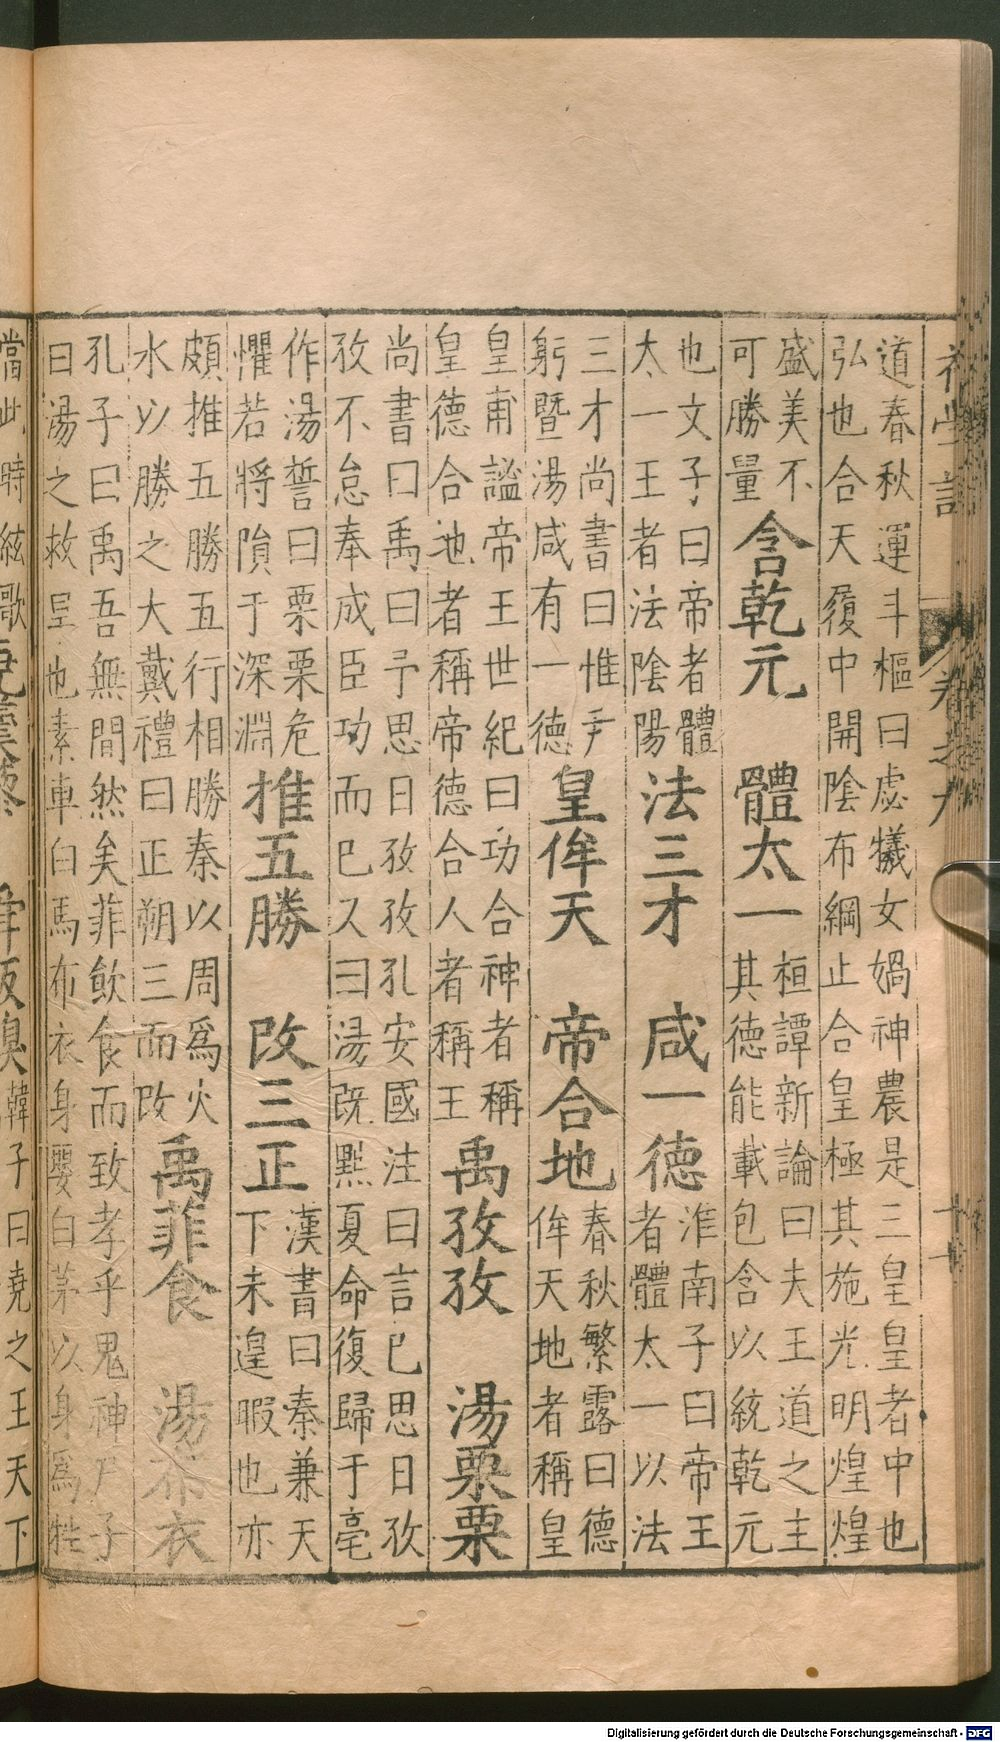 初學記 卷之九 十一
道春秋運斗樞曰虙犧女媧神農是三皇皇者中也
弘也合天履中開陰布綱止合皇極其施光明煌煌
盛美不
可勝量
含乾元 體太一
桓譚新論曰夫王道之主
其德能載包含以統乾元
也文子曰帝者體
太一王者法陰陽
法三才 咸一德
淮南子曰帝王
者體太一以法
三才尚書曰惟尹
躬暨湯咸有一德
皇侔天 帝合地
春秋繁露曰德
侔天地者稱皇
皇甫謐帝王世紀曰功合神者稱
皇德合地者稱帝德合人者稱王
禹孜孜 湯栗栗
尚書曰禹曰予思日孜孜孔安國注曰言已思日孜
孜不怠奉成臣功而已又曰湯旣黜夏命復歸于亳
作湯誓曰栗栗危
懼若將隕于深淵
推五勝 改三正
漢書曰秦兼天
下未遑暇也亦
頗推五勝五行相勝秦以周爲火
水以勝之大戴禮曰正朔三而改
禹菲食 湯布衣
孔子曰禹吾無間然矣菲飲食而致孝乎鬼神尸子
曰湯之救旱也素車白馬布衣身嬰白茅以身爲牲
當此時絃歌
韓子曰堯之王天下
Digitalisierung gefördert durch die Deutsche Forschungsgemeinschaft - DFG